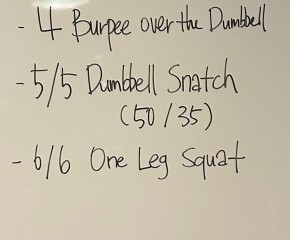 - 4 Burpee over the Dumbbell
- 5/5 Dumbbell Snatch
(50/35)
- 6/6 One Leg Squat